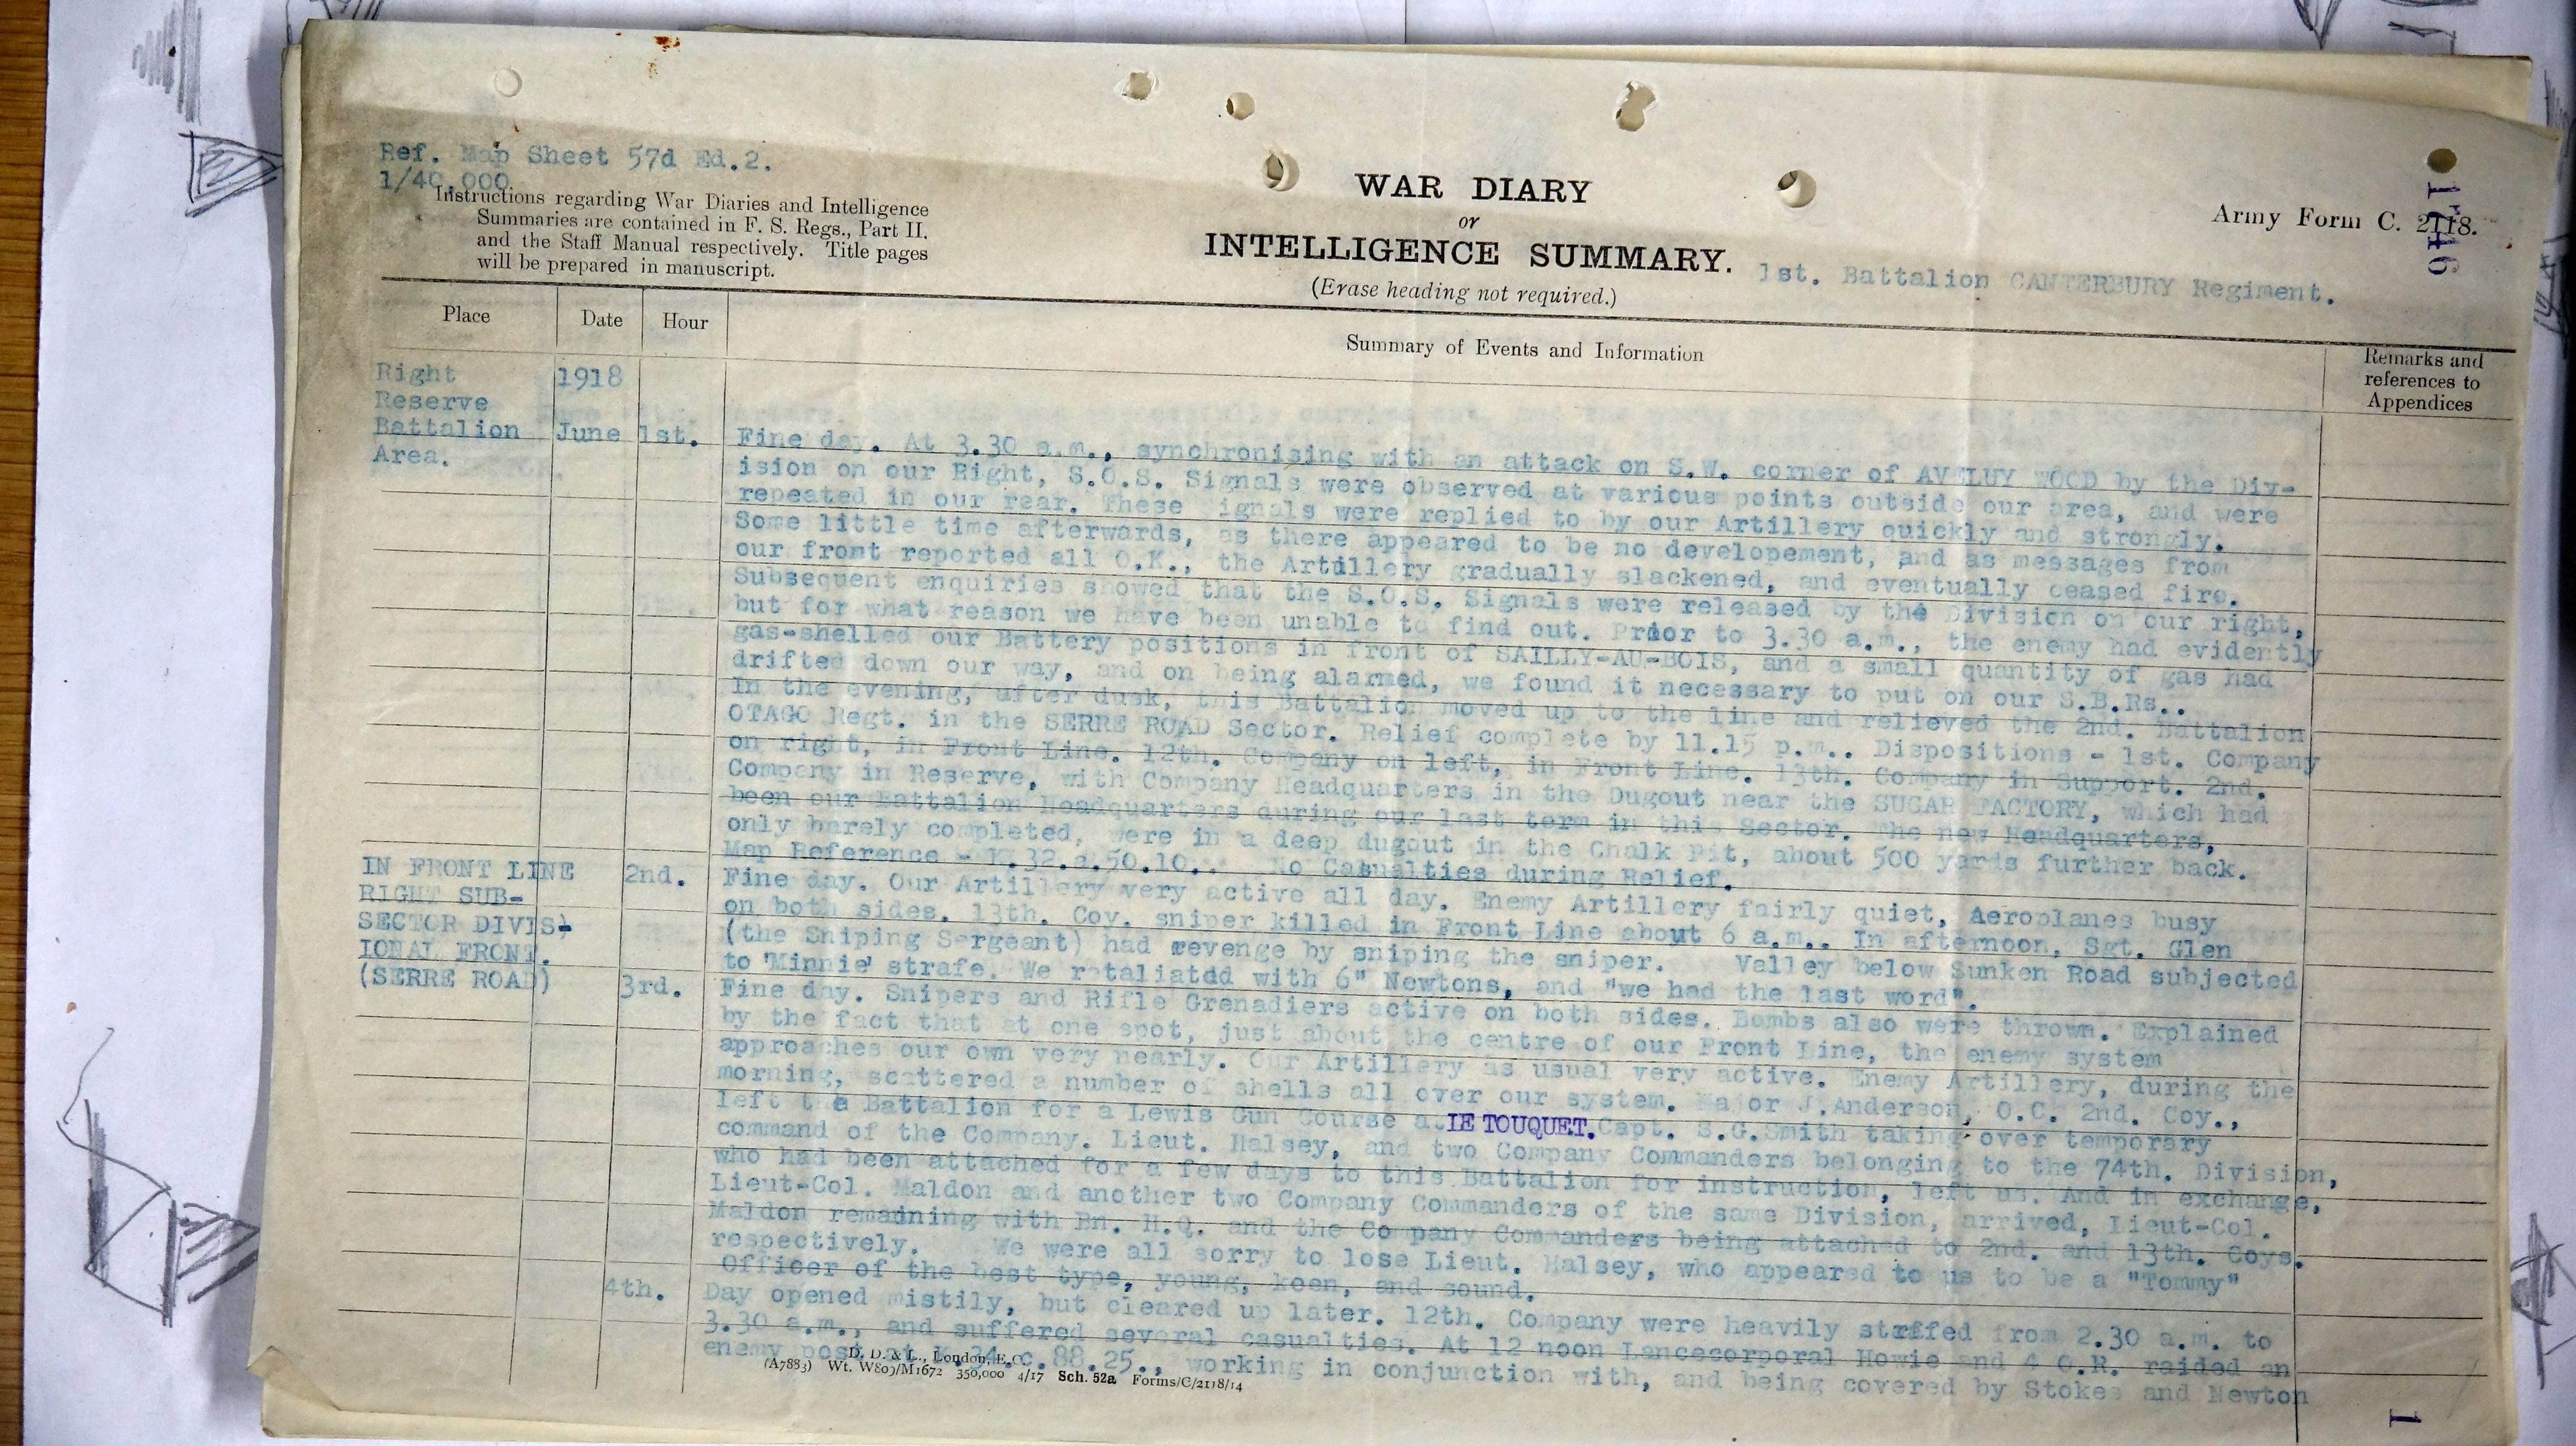 Ref. Map Sheet 57d Ed.2.
1/40,000
Instructions regarding War Diaries and Intelligence
Summaries are contained in F. S. Regs., Part II.
and the Staff Manual respectively. Title pages
will be prepared in manuscript.
WAR DIARY
or
INTELLIGENCE SUMMARY.
(Erase heading not required.)
1st. Battalion CANTERBURY Regiment.
Army Form C. 2118.
Place
Date
Hour
Summary of Events and Information
Remarks and
references to
Appendices
Right
Reserve
Battalion
Area.
1918
June 1st.
Fine day. At 3.30 a.m., synchronising with an attack on S.W. corner of AVELUY WOOD by the Div-
ision on our Right, S.O.S. Signals were observed at various points outside our area, and were
repeated in our rear. These ignals were replied to by our Artillery quickly and strongly.
Some little time afterwards, as there appeared to be no developement, and as messages from
our front reported all O.K., the Artillery gradually slackened, and eventually ceased fire.
Subsequent enquiries showed that the S.O.S. Signals were released by the Division on our right,
but for what reason we have been unable to find out. Prior to 3.30 a.m., the enemy had evidently
gas-shelled our Battery positions in front of SAILLY-AU-BOIS, and a small quantity of gas had
drifted down our way, and on being alarmed, we found it necessary to put on our S.B.Rs..
In the evening, after dusk, this Battalion moved up to the line and relieved the 2nd. Battalion
OTAGO Regt. in the SERRE ROAD Sector. Relief complete by 11.15 p.m.. Dispositions - 1st. Company
on right, in Front Line. 12th. Company on left, in Front Line. 13th. Company in Support. 2nd.
Company in Reserve, with Company Headquarters in the Dugout near the SUGAR FACTORY, which had
been our Battalion Headquarters during our last term in this Sector. The new Headquarters,
only barely completed, were in a deep dugout in the Chalk Pit, about 500 yards further back.
Map Reference - K.32.a.50.10.. No Casualties during Relief.
IN FRONT LINE
RIGHT SUB-
SECTOR DIVIS-
IONAL FRONT.
(SERRE ROAD)
2nd.
Fine day. Our Artillery very active all day. Enemy Artillery fairly quiet, Aeroplanes busy
on both sides. 13th. Coy. sniper killed in Front Line about 6 a.m.. In afternoon, Sgt. Glen
(the Sniping Sergeant) had revenge by sniping the sniper. Valley below Sunken Road subjected
to 'Minnie' strafe. We retaliatdd with 6" Newtons, and "we had the last word".
3rd.
Fine day. Snipers and Rifle Grenadiers active on both sides. Bombs also were thrown. Explained
by the fact that at one spot, just about the centre of our Front Line, the enemy system
approaches our own very nearly. Our Artillery as usual very active. Enemy Artillery, during the
morning, scattered a number of shells all over our system. Major J.Anderson, O.C. 2nd. Coy.,
left the Battalion for a Lewis Gun Course at LE TOUQUET. Capt. S.G.Smith taking over temporary
command of the Company. Lieut. Halsey, and two Company Commanders belonging to the 74th. Division,
who had been attached for a few days to this Battalion for instruction, left us. And in exchange,
Lieut-Col. Maldon and another two Company Commanders of the same Division, arrived, Lieut-Col.
Maldon remaining with Bn. H.Q. and the Co pany Commanders being attached to 2nd. and 13th. Coys.
respectively. We were all sorry to lose Lieut. Halsey, who appeared to us to be a "Tommy"
Officer of the best type, young, keen, and sound.
4th.
Day opened mistily, but cleared up later. 12th. Company were heavily strafed from 2.30 a.m. to
3.30 a.m., and suffered several casualties. At 12 noon Lancecorporal Howie and 4 O.R. raided an
enemy post at K.34.c.88.25., working in conjunction with, and being covered by Stokes and Newton
D. D. & L., London, E.C.
(A7883) Wt. W809/M1672 350,000 4/17 Sch. 52a Forms/C/2118/14
1